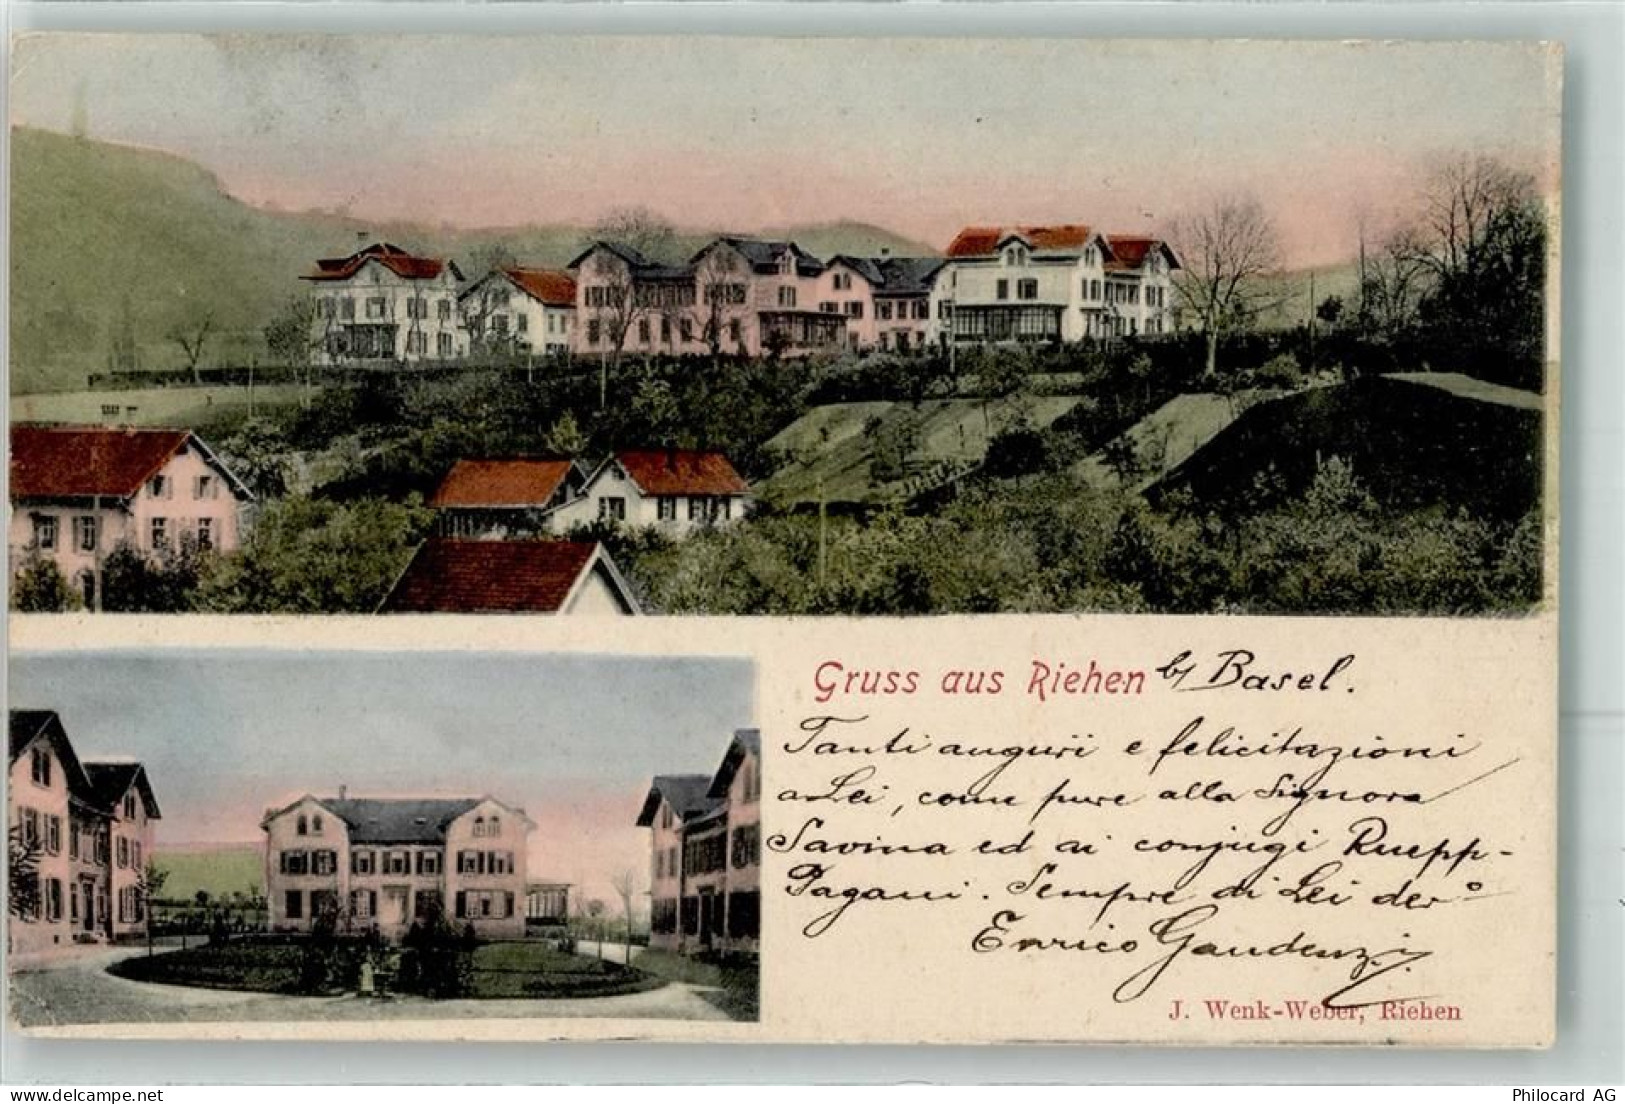 Gruss aus Riehen b/ Basel.
Tanti augurii e felicitazioni
a Lei, come pure alla Signora
Savina ed ai conjugi Ruepp-
Pagani. Sempre di Lei der°
Enrico Gaudenzi
J. Wenk-Weber, Riehen
Philocard AG